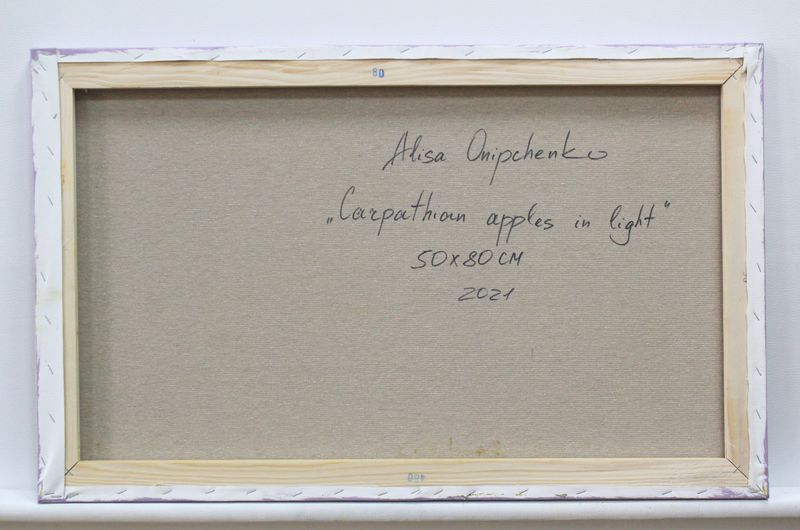 80
Alisa Onipchenko
„Carpathian apples in light”
50x80 CM
2021